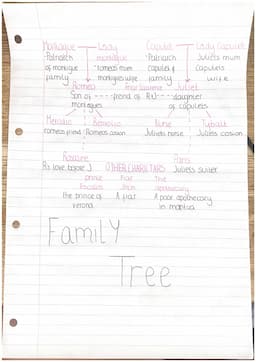 Montague Lady Capulet Lady Capulet
-Patriarch montague -Patriarch Juliets mum
of montague -romeos mum capulet capulets
family montagues wife family wife
Romeo Friar Laurence Juliet
Son of friend of R+J daughter
montagues of capulets
Mercutio Benvolio Nurse Tybalt
romeos friend Romeos cosion Juliets nurse Juliets cosion
Rosaline OTHER CHARACTARS Paris
Rs love before J Juliets suiter
prince friar The
Escalus John apothecary
the prince of A friar A poor apothecary
verona in mantua
Family
Tree